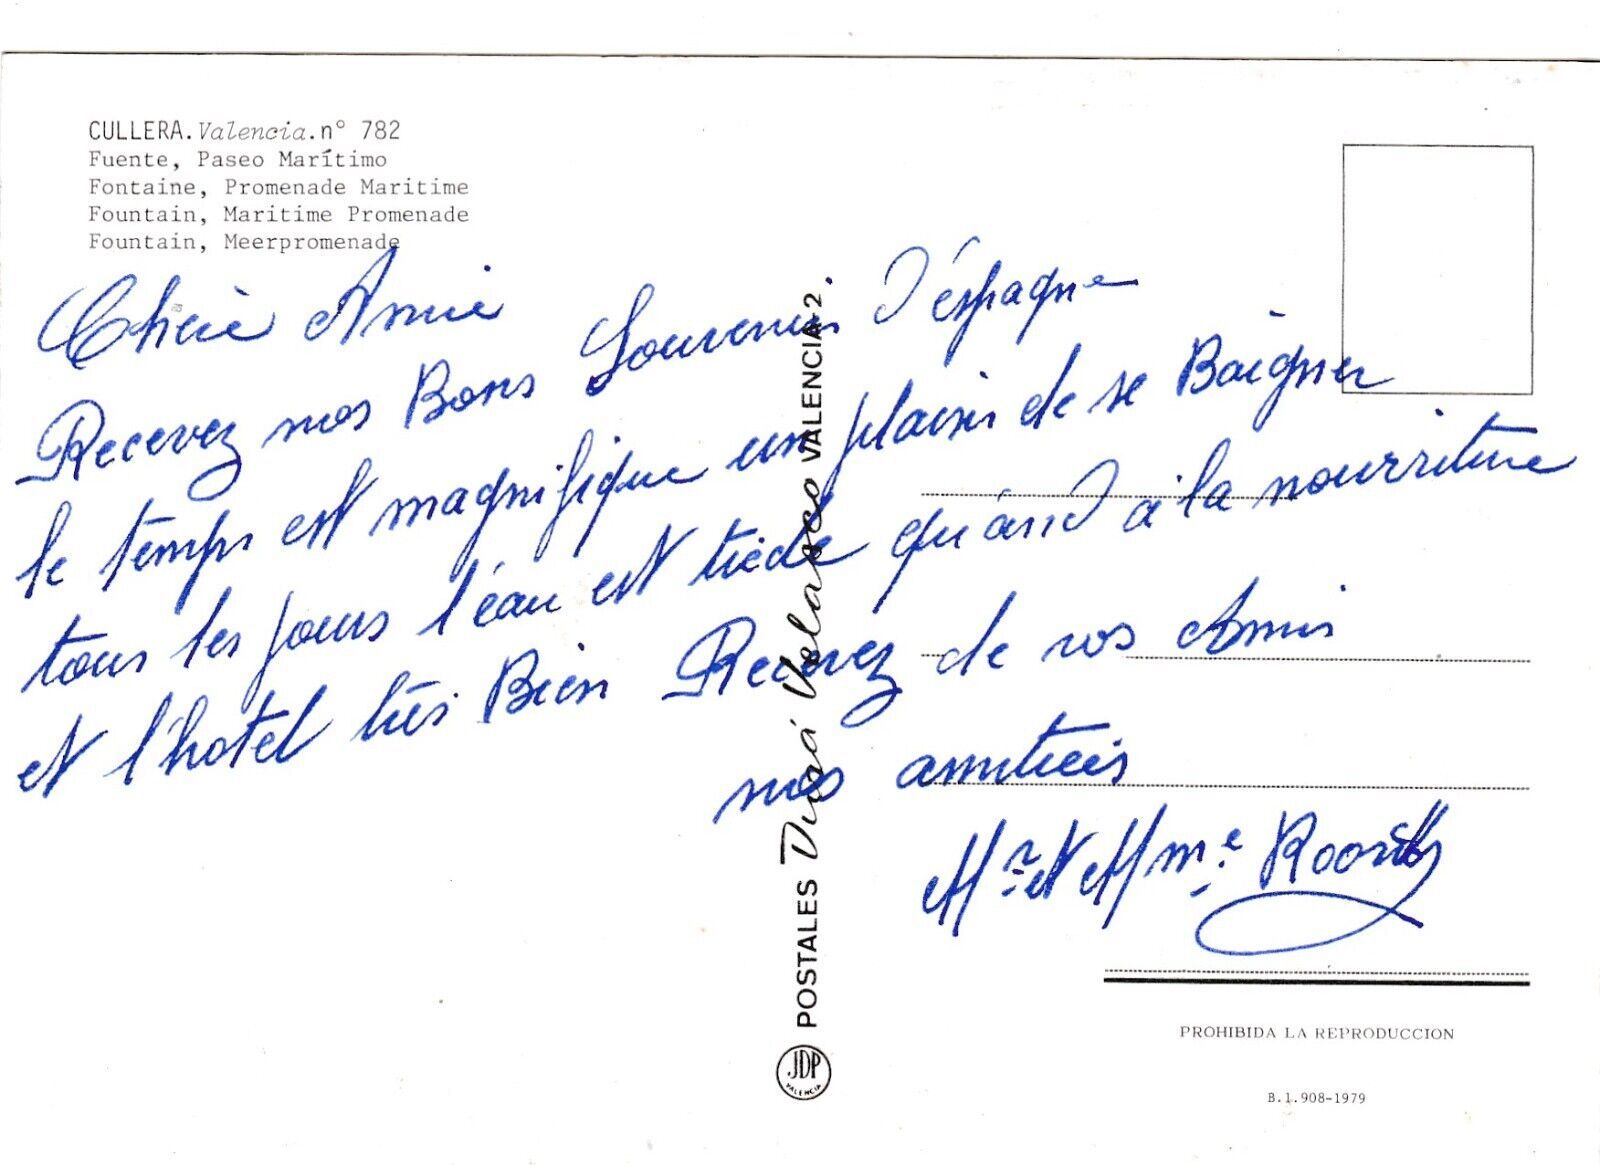 CULLERA. Valencia. nº 782
Fuente, Paseo Marítimo
Fontaine, Promenade Maritime
Fountain, Maritime Promenade
Fountain, Meerpromenade
Chère Amie
Recevez nos Bons Souvenirs D'éspagne
le temps est magnifique un plaisir de se Baigner
tous les jours l'éau est tiede quand à la nourriture
et l'hotel très Bien Recevez de vos Amis
nos amitiés
Mr. et Mme.
POSTALES Durá Velasco VALENCIA-2.
JDP
VALENCIA
PROHIBIDA LA REPRODUCCION
B.1.908-1979